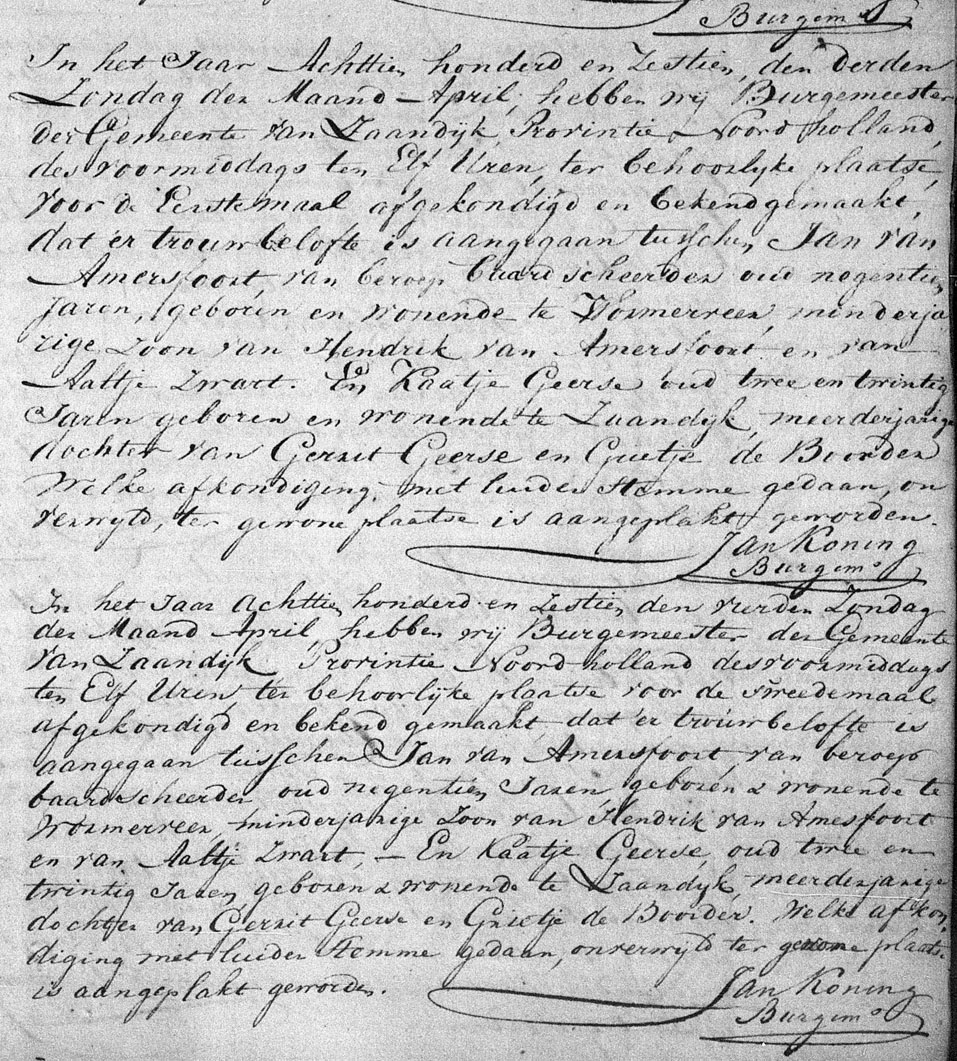 Burgemr
In het Jaar Achttien honderd en Zestien, den derden
Zondag der Maand April, hebben wij Burgemeester
der Gemeente van Zaandijk, Provintie Noord holland,
des voormiddags ten Elf Uren, ter behoorlyke plaatse,
voor de Eerstemaal afgekondigd en bekendgemaakt,
dat er trouwbelofte is aangegaan tusschen, Jan van
Amersfoort, van beroep baardscheerder oud negentien
Jaren, geboren en wonende te Wormerveer, minderja
rige Zoon van Hendrik van Amersfoort en van
Aaltje Zwart. En Kaatje Geerse oud twee en twintig
Jaren geboren en wonende te Zaandyk, meerderjarige
dochter van Gerrit Geerse en Grietje de Boorder
Welke afkondiging, met luider Stemme gedaan, on
verwyld, ter gewone plaatse is aangeplakt geworden.
Jan Koning
Burgemr
In het Jaar Achttien honderd en Zestien den vierden Zondag
der Maand April, hebben wij Burgemeester der Gemeente
van Zaandijk Provintie Noord holland des voormiddags
ten Elf Uren, ter behoorlijke plaatse voor de tweedemaal
afgekondigd en bekend gemaakt dat er trouwbelofte is
aangegaan tusschen Jan van Amersfoort, van beroep
baardscheerder, oud negentien Jaren, geboren & wonende te
Wormerveer, minderjarige Zoon van Hendrik van Amesfoort
en van Aaltje Zwart, — En Kaatje Geerse, oud twee en
twintig Jaren, geboren & wonende te Zaandyk, meerderjarige
dochter van Gerrit Geerse en Grietje de Boorder. Welke afkon
diging met luider Stemme gedaan, onverwyld ter gewone plaatse
is aangeplakt geworden.
Jan Koning
Burgemr